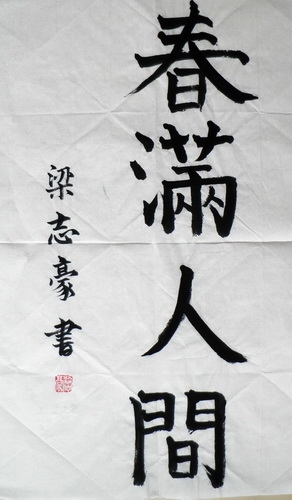 春滿人間
梁志豪書